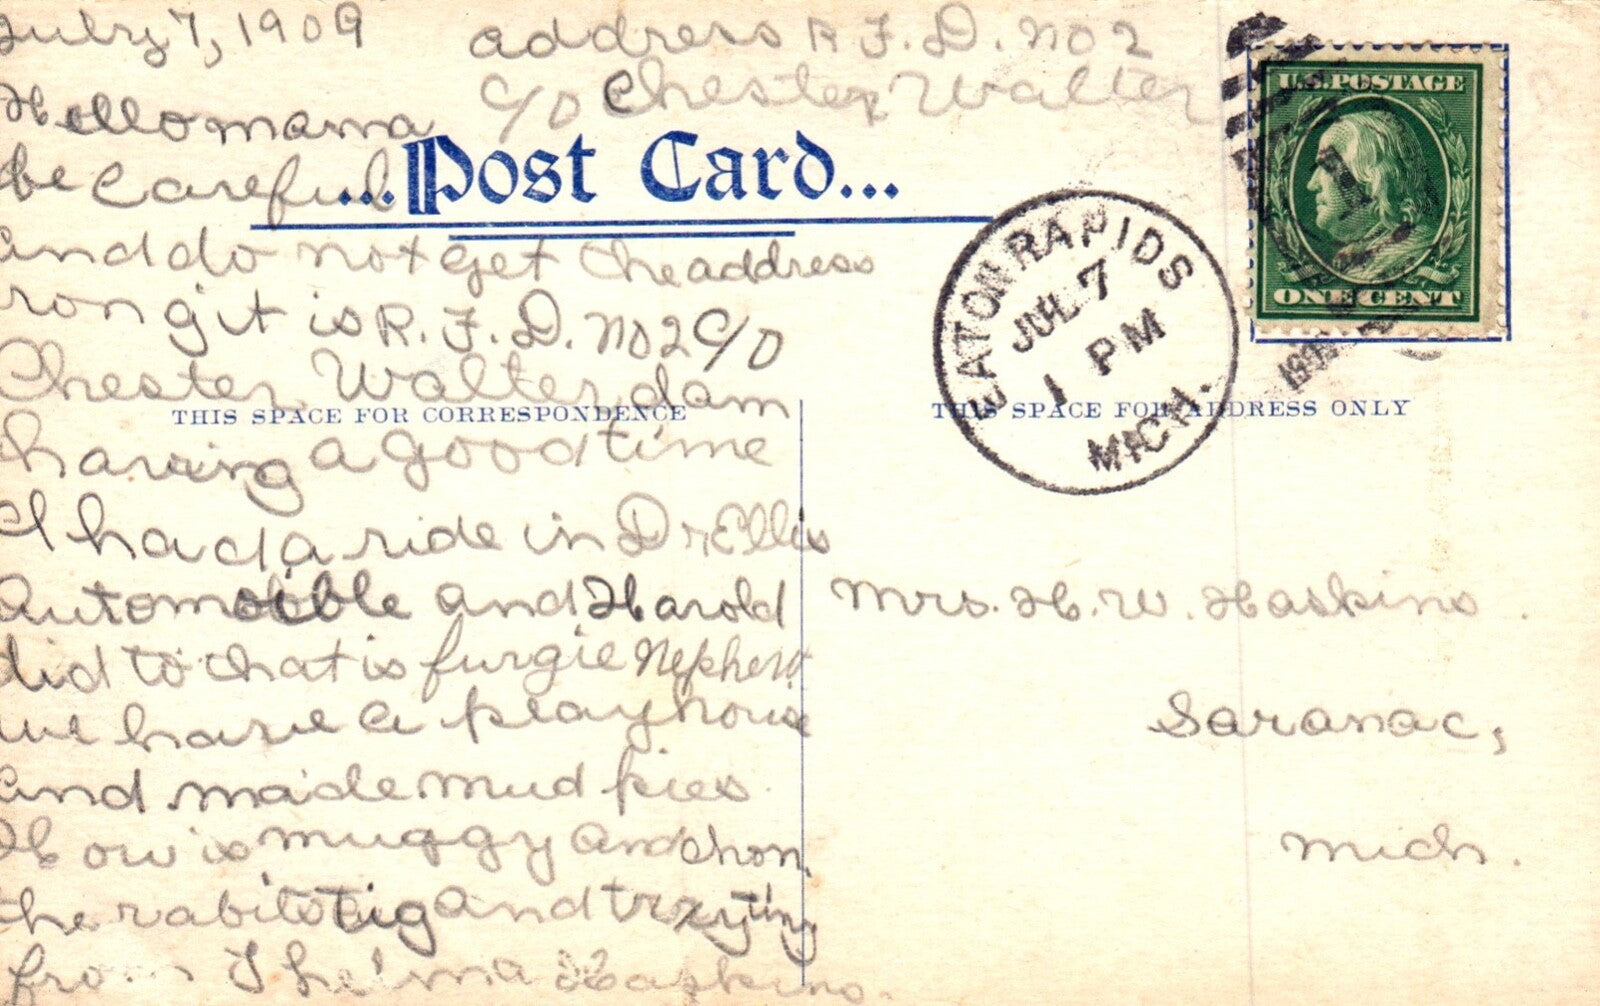 July 7, 1909
address R. F. D. no 2
c/o Chester Walter
Hello mama
be careful
and do not get the address
rong it is R. F. D. no 2 c/o
Chester Walter dam
having a good time
I had a ride in Dr Ellis
Automobile and Harold
did to that is furgie Nephew
we have a playhouse
and made mud pies
How is muggy and
the rabits tig and
from Thelma Haskins.
...Post Card...
THIS SPACE FOR CORRESPONDENCE
THIS SPACE FOR ADDRESS ONLY
U.S. POSTAGE
ONE CENT
EATON RAPIDS
JUL 7
1 PM
MICH.
Mrs. H. W. Haskins
Saranac,
Mich.